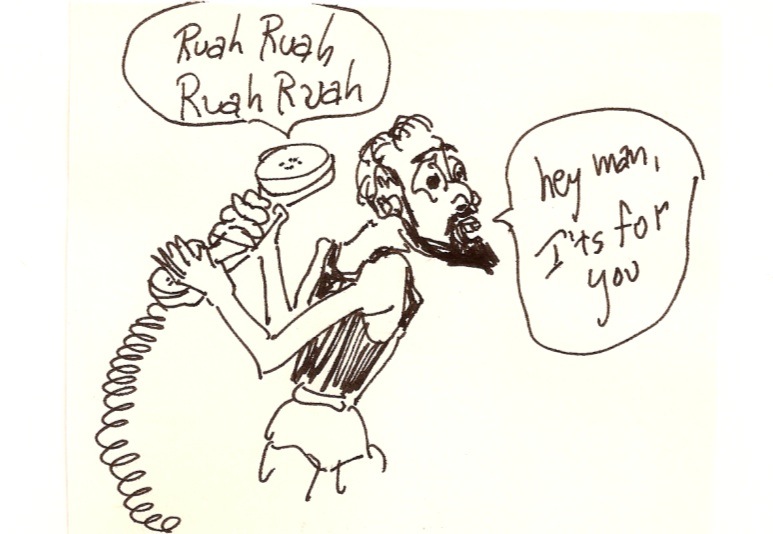 Ruah Ruah
Ruah Ruah
hey man,
I'ts for
you